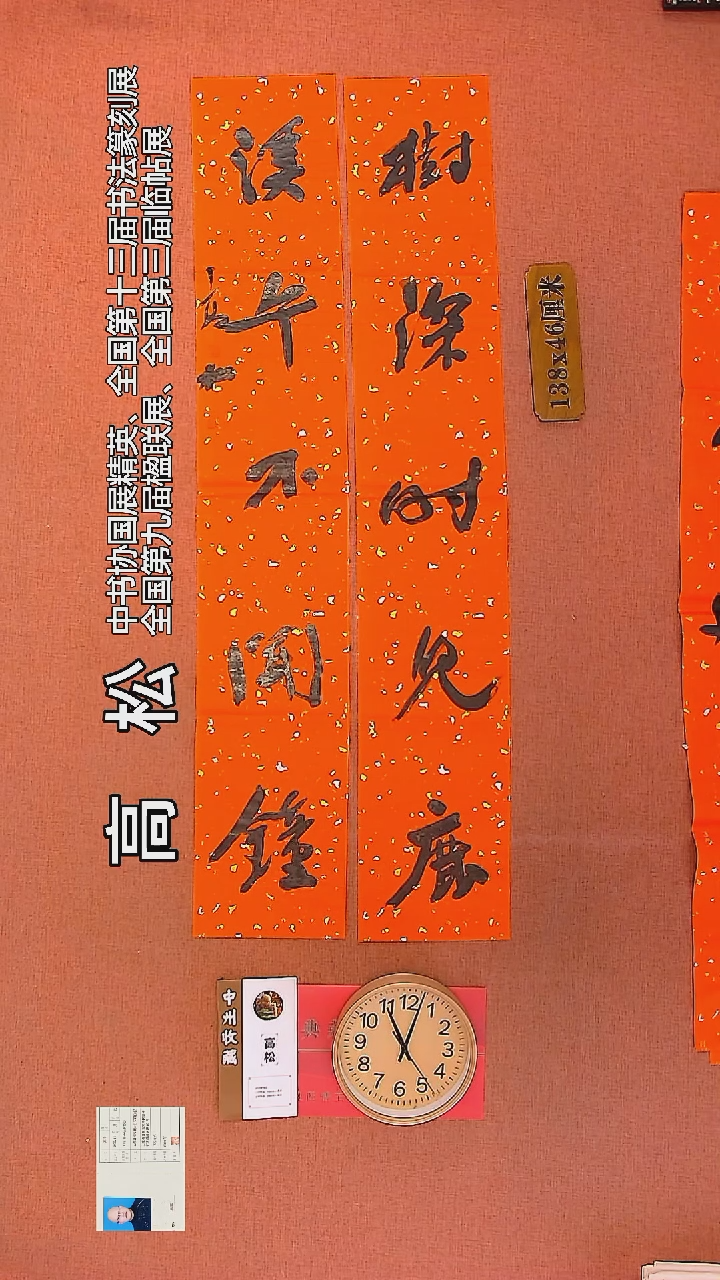 高 松
中书协国展精英、全国第十三届书法篆刻展
全国第九届楹联展、全国第三届临帖展
樹深时見鹿
溪午不闻鐘
138x46厘米
中州资藏
高松
典
12
1
2
3
4
5
6
7
8
9
10
11